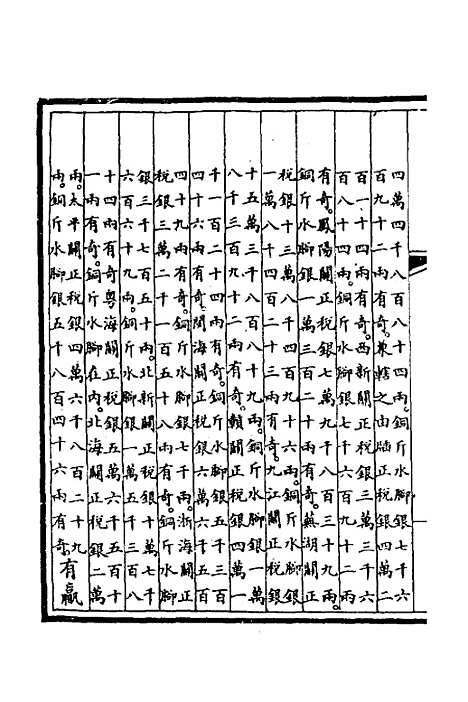 四萬四千八百八十四兩。銅斤水腳銀七千六
百九十二兩有奇。兼轄之由牐正稅銀四萬二
百一十四兩有奇。西新關正稅銀三萬三千六
百八十四兩。銅斤水腳銀七千六百九十二兩
有奇。鳳陽關正稅銀七萬九千八百三十九兩。
銅斤水腳銀一萬三百二十兩有奇。蕪湖關正
稅銀十三萬八千四百九十六兩。銅斤水腳銀
一萬八千四百二十三兩有奇。九江關正稅銀
十五萬三千八百八十九兩。銅斤水腳銀一萬
八千三百九十二兩有奇。贛關正稅銀四萬一
千一百二十四兩有奇。銅斤水腳銀五千三百
四十六兩有奇。閩海關正稅銀六萬六千五百
四十九兩有奇。銅斤水腳銀七千兩。浙海關正
稅銀三萬二千一百五十八兩有奇。銅斤水腳
銀三千七百五十兩。北新關正稅銀十萬七千
六百六十九兩。銅斤水腳銀一萬五千三百八
十四兩有奇。粵海關正稅銀五萬六千五百十
一兩有奇。銅斤水腳在內。北海關正稅銀二萬
兩。太平關正稅銀四萬六千八百二十九
兩。銅斤水腳銀五千八百四十六兩有奇有贏